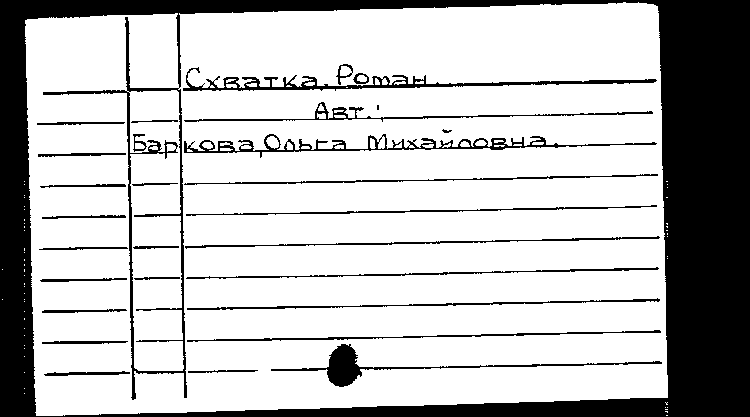 Схватка. Роман.
Авт.:
Баркова, Ольга Михайловна.